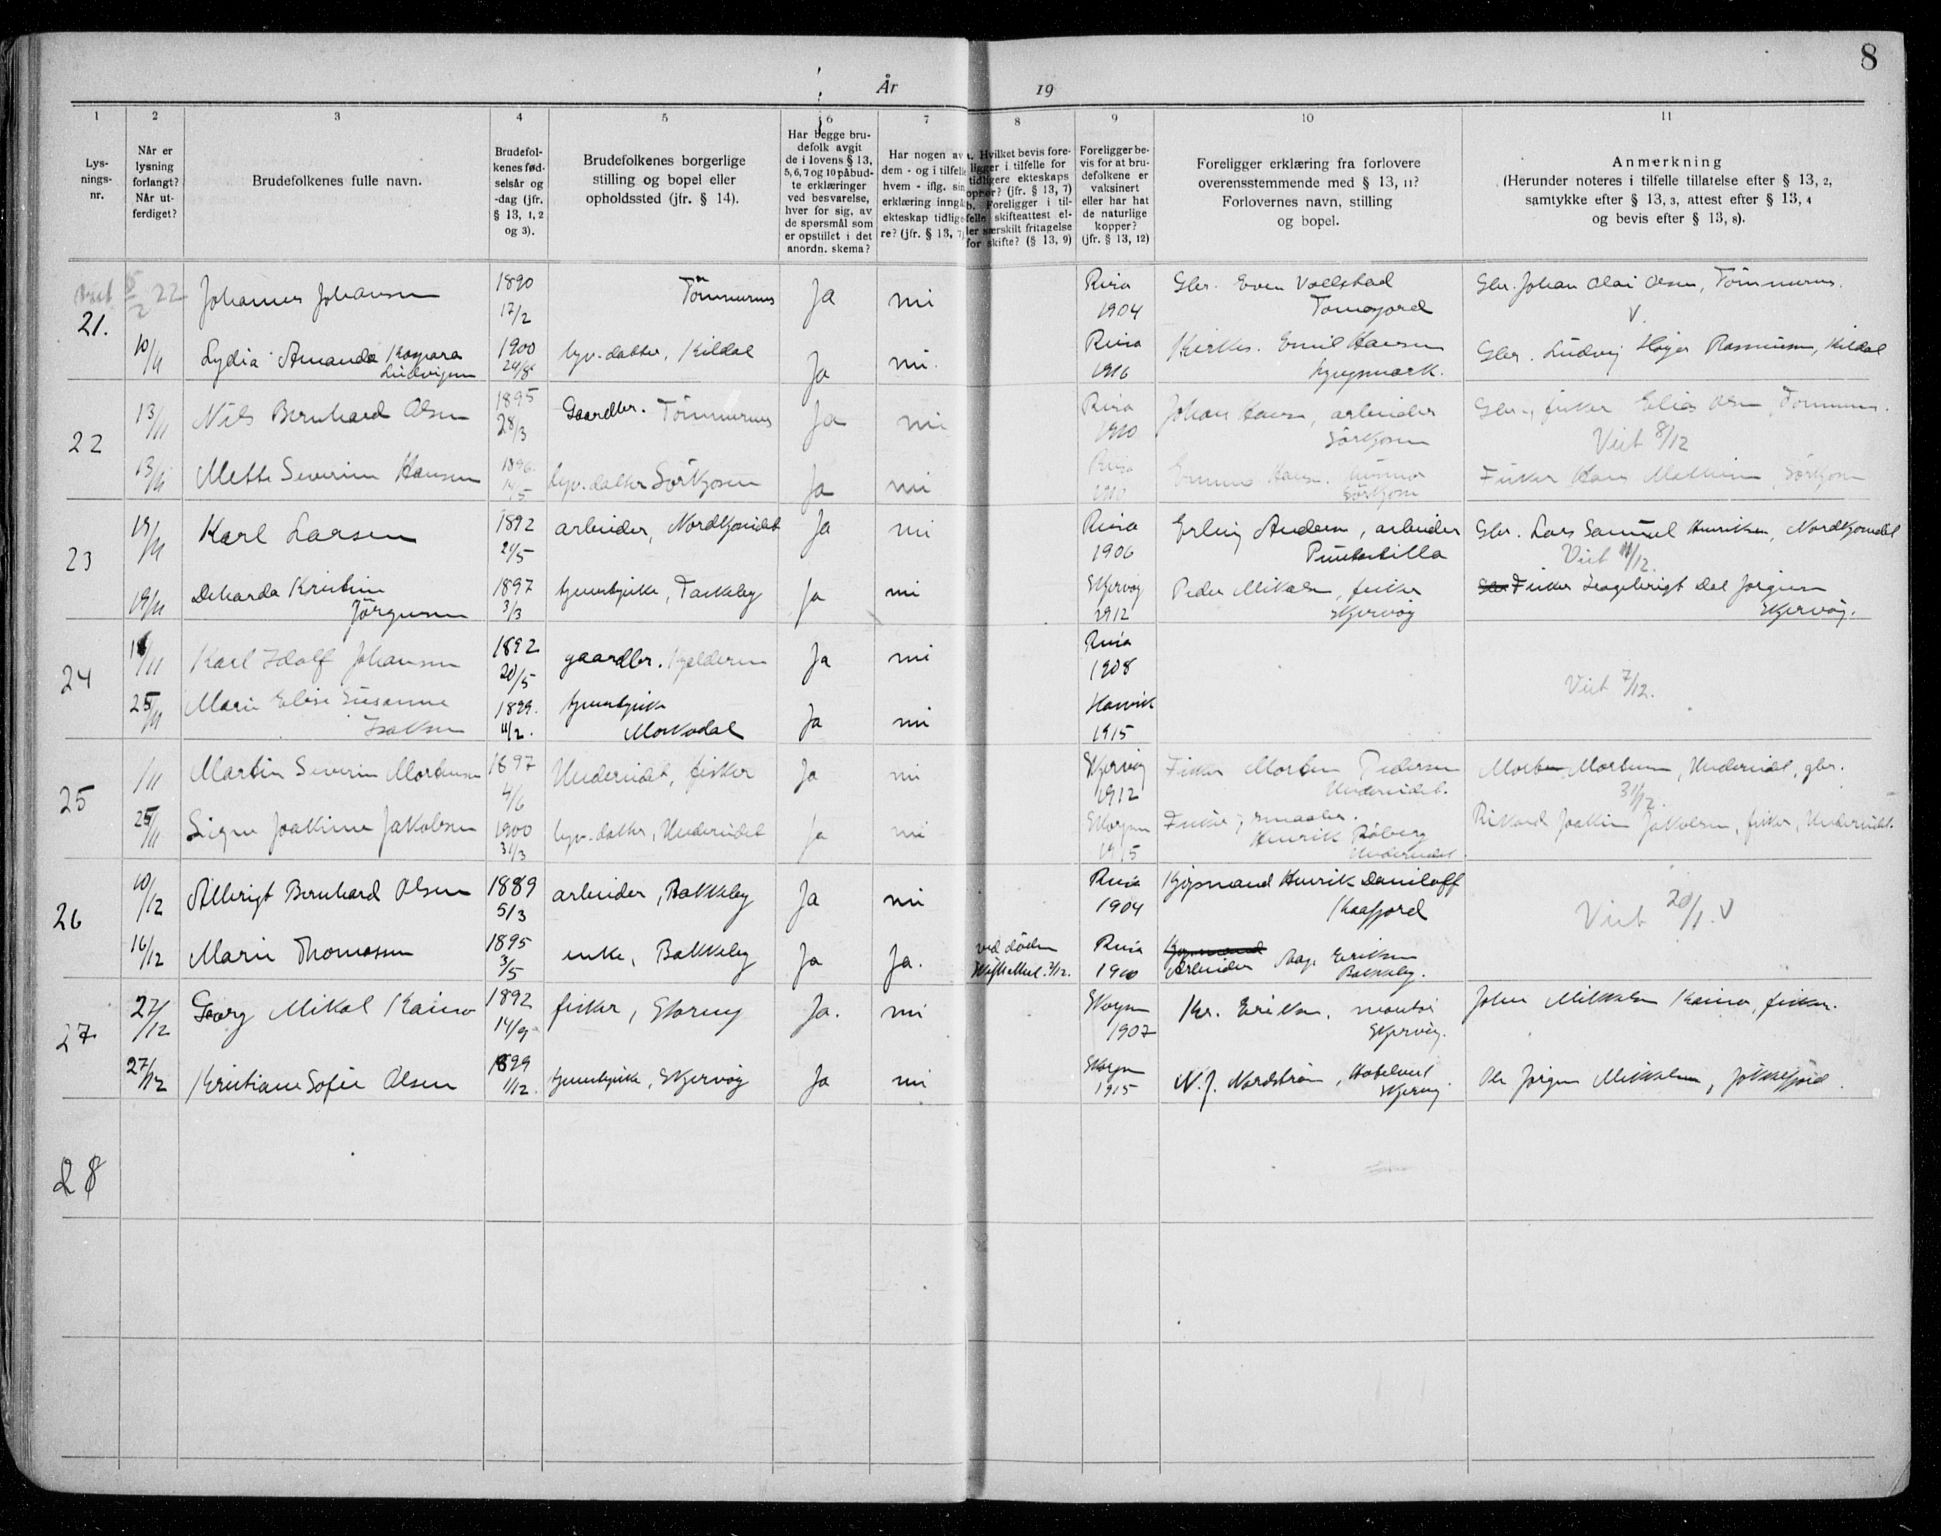 8
År 19
1 2 3 4 5 6 7 8 9 10 11
Lys-
nings-
nr.
Når er
lysning
forlangt?
Når ut-
ferdiget?
Brudefolkenes fulle navn.
Brudefol-
kenes fød-
selsår og
-dag (jfr.
§ 13, 1, 2
og 3).
Brudefolkenes borgerlige
stilling og bopel eller
opholdssted (jfr. § 14).
Har begge bru-
defolk avgit
de i lovens § 13,
5, 6, 7 og 10 påbud-
te erklæringer
ved besvarelse,
hver for sig, av
de spørsmål som
er opstillet i det
anordn. skema?
Har nogen av
dem - og i tilfelle
hvem - iflg. sin
erklæring inngå
ekteskap tidlige-
re? (jfr. § 13, 7)
a. Hvilket bevis fore-
ligger i tilfelle for
tidligere ekteskaps
ophør? (jfr. § 13, 7)
b. Foreligger i til-
felle skifteattest el-
ler særskilt fritagelse
for skifte? (§ 13, 9)
Foreligger be-
vis for at bru-
defolkene er
vaksinert
eller har hat
de naturlige
kopper?
(jfr. § 13, 12)
Foreligger erklæring fra forlovere
overensstemmende med § 13, 11?
Forlovernes navn, stilling
og bopel.
Anmerkning
(Herunder noteres i tilfelle tillatelse efter § 13, 2,
samtykke efter § 13, 3, attest efter § 13, 4
og bevis efter § 13, 8).
21. 5/2 22 Johannes Johansen 1890 17/2 Tömmernes Ja nei 1904 Gbr. Even Vollstad Gbr. Johan Olai Olsen, Tömmernes.
V.
10/11 Lydia Amanda Kaspara
Ludvigsen 1900 24/8 hjv. datter, Kildal Ja nei. 1916 Kirkes. Emil Hansen Gbr. Ludvig Højer Rasmussen, Kildal
22 13/11 Nils Bernhard Olsen 1895 28/3 Gaardbr. Tömmernes Ja nei 1910 Johan Hansen, arbeider
Sörkjosen Gbr., fisker Elias Olsen Tömmernes.
Viet 8/12
13/11 Mette Severine Hansen 1896 14/5 hjv. datter Sörkjosen Ja nei 1910 Sörkjosen Fisker Hans Mathisen Sörkjosen
23 19/11 Karl Larsen 1892 21/5 arbeider, Nordkjosidet Ja nei 1906 Erling Andersen, arbeider Gbr. Lars Samuel Henriksen, Nordkjosidet
Viet 11/12.
19/11 Deharda Kristine
Jörgensen 1897 3/3 tjenestepike, Taskeby Ja nei Skjervöy 1912 Peder Mikalsen, fisker
Skjervöy Fisker Ingebrigt Dal Jörgensen
Skjervöy.
24 /11 Karl Idolf Johansen 1892 20/5 gaardbr. Kjelderen Ja nei 1908
25/11 Marie Elise Susanne
Isaksen 1899. 11/2. tjenestepike
Ja nei 1915 Viet 7/12.
25 /11 Martin Severin Mortensen 1897 4/6 Undereidet, fisker Ja nei Skjervöy 1912 Fisker Morten Pedersen
Undereidet. Morten Mortensen, Undereidet, gbr.
31/12.
25/11 Signe Joakime Jakobsen 1900 31/3 hjv. datter, Undereidet Ja nei 1915 Fisker, smaabr.
Henrik Röberg
Undereidet. Rikard Joakim Jakobsen, fisker, Undereidet.
26 10/12 Albrigt Bernhard Olsen 1889 5/3 arbeider, Bakkeby Ja nei 1904 Kjøpmand Henrik Daniloff
Kaafjord Viet 20/1. V
16/12 Marie Thomassen 1895 3/5 enke, Bakkeby Ja Ja. ved döden 1910 Kjøpmand
Arbeider Aage Eriksen
Bakkeby.
27 27/12 Georg Mikal Kaino 1892 14/9 fisker, Ja. nei 1907 Kr. Eriksen, montör
Skjervöy. John Mikkelsen Kaino, fisker.
27/12 Kristiane Sofie Olsen 1899 1/12. tjenestepike, Skjervöy Ja nei 1915 N. J. Nordström, Hotelvert
Skjervöy Ole Jörgen Mikkelsen, Jökelfjord.
28